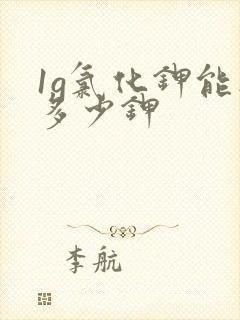 1g氯化钾能
多少钾
李航